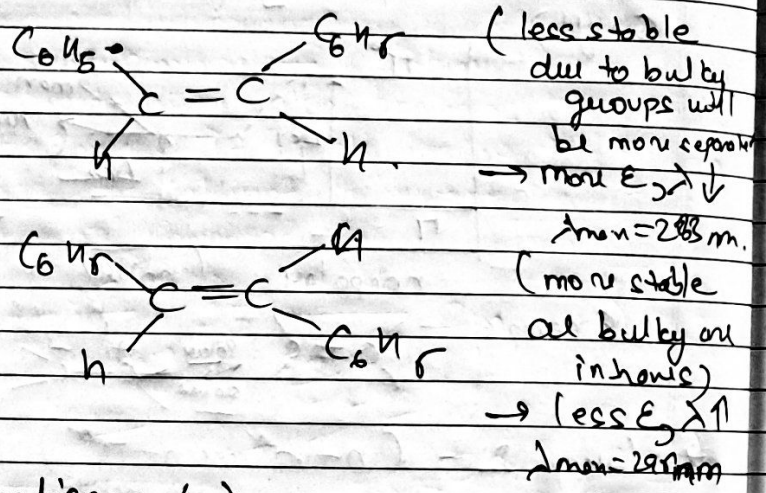 C6H5 C6H5 (less stable
C = C due to bulky
groups will
H H. be more separate
→ more ε, λ ↓
λmax = 283 m.
C6H5 H (more stable
C = C as bulky are
H C6H5 in trans)
→ less ε, λ↑
λmax = 295 nm